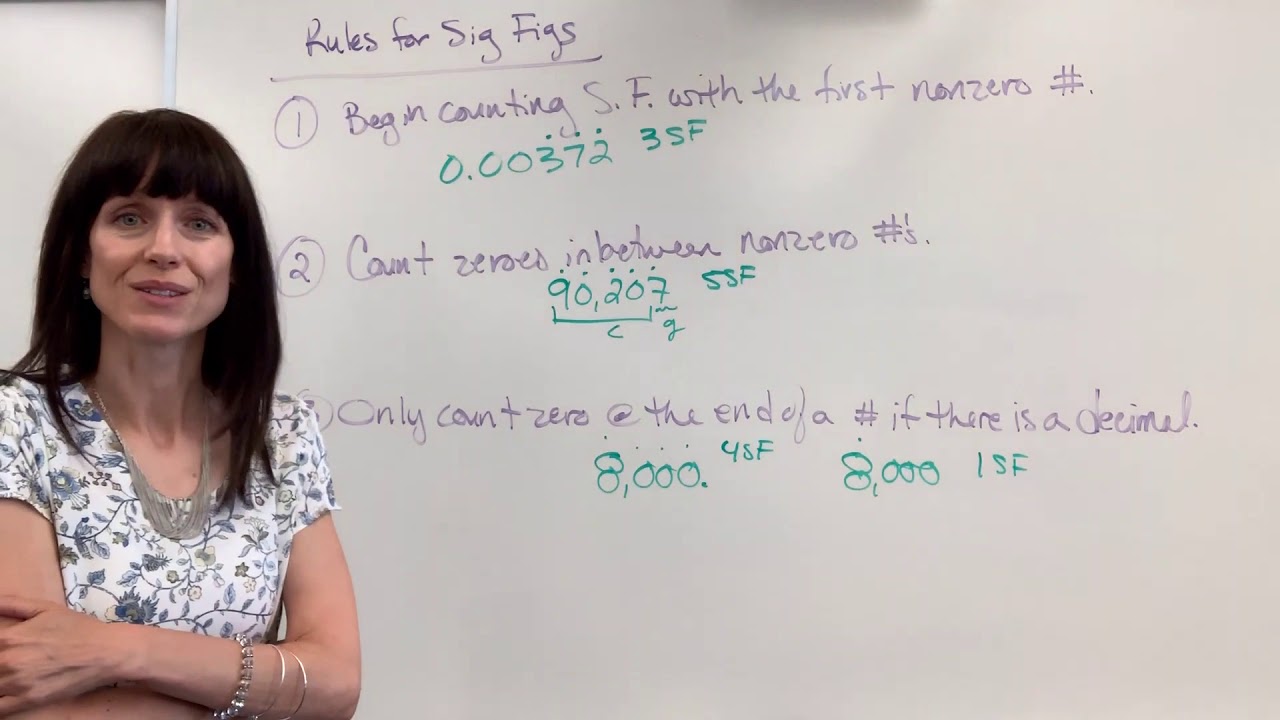 Rules for Sig Figs
① Begin counting S.F. with the first nonzero #.
0.00372 3SF
② Count zeroes inbetween nonzero #'s.
90,207 5SF
c g
③ Only count zero @ the end of a # if there is a decimal.
8,000. 4SF 8,000 1SF